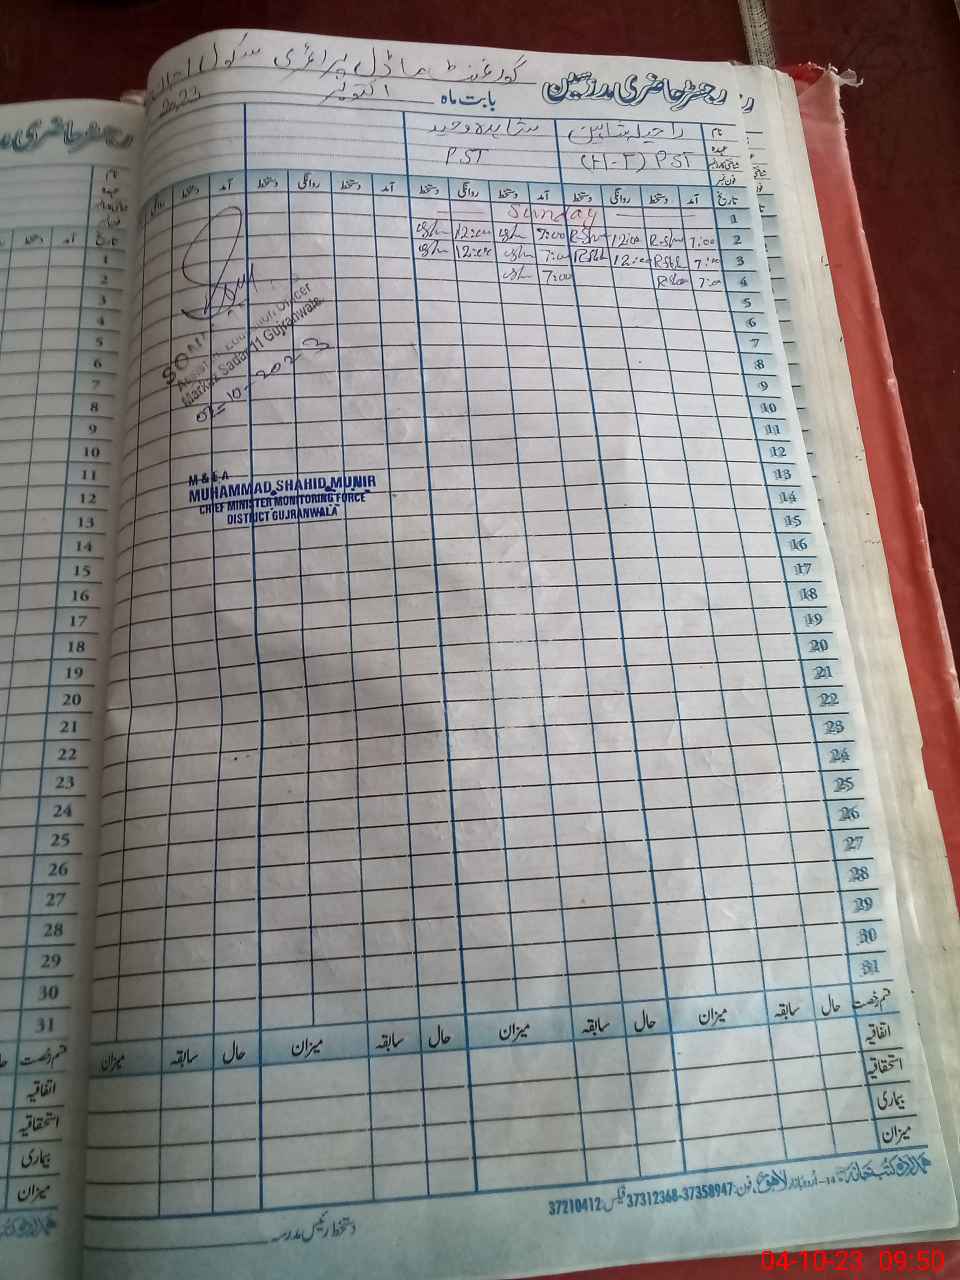 گورنمنٹ ماڈل پرائمری سکول
رجسٹر حاضری مدرسین بابت ماہ اکتوبر 2023
نام راحیلہ شاہین شاہدہ وحید
عہدہ (H-T) PST PST
فون نمبر
تاریخ آمد دستخط روانگی دستخط آمد دستخط روانگی دستخط آمد دستخط روانگی دستخط آمد دستخط روانگی
1 Sunday
2 7:00 12:00 7:00 12:00
3 7:00 12:00 7:00 12:00
4 7:00 7:00
5
6
7
8
9
10
11
12
13
14
15
16
17
18
19
20
21
22
23
24
25
26
27
28
29
30
31
Markaz Sadar 11 Gujranwala
02-10-2023
M & E A
MUHAMMAD SHAHID MUNIR
CHIEF MINISTER MONITORING FORCE
DISTRICT GUJRANWALA
قسم رخصت حال سابقہ میزان حال سابقہ میزان حال سابقہ میزان حال سابقہ میزان
اتفاقیہ
استحقاقیہ
بیماری
میزان
اردو بازار لاہور فون: 37358947-37312368 فیکس: 37210412
دستخط رئیس مدرسہ
رجسٹر حاضری
نام
عہدہ
تاریخ آمد دستخط
1
2
3
4
5
6
7
8
9
10
11
12
13
14
15
16
17
18
19
20
21
22
23
24
25
26
27
28
29
30
31
قسم رخصت
اتفاقیہ
استحقاقیہ
بیماری
میزان
04-10-23 09:50